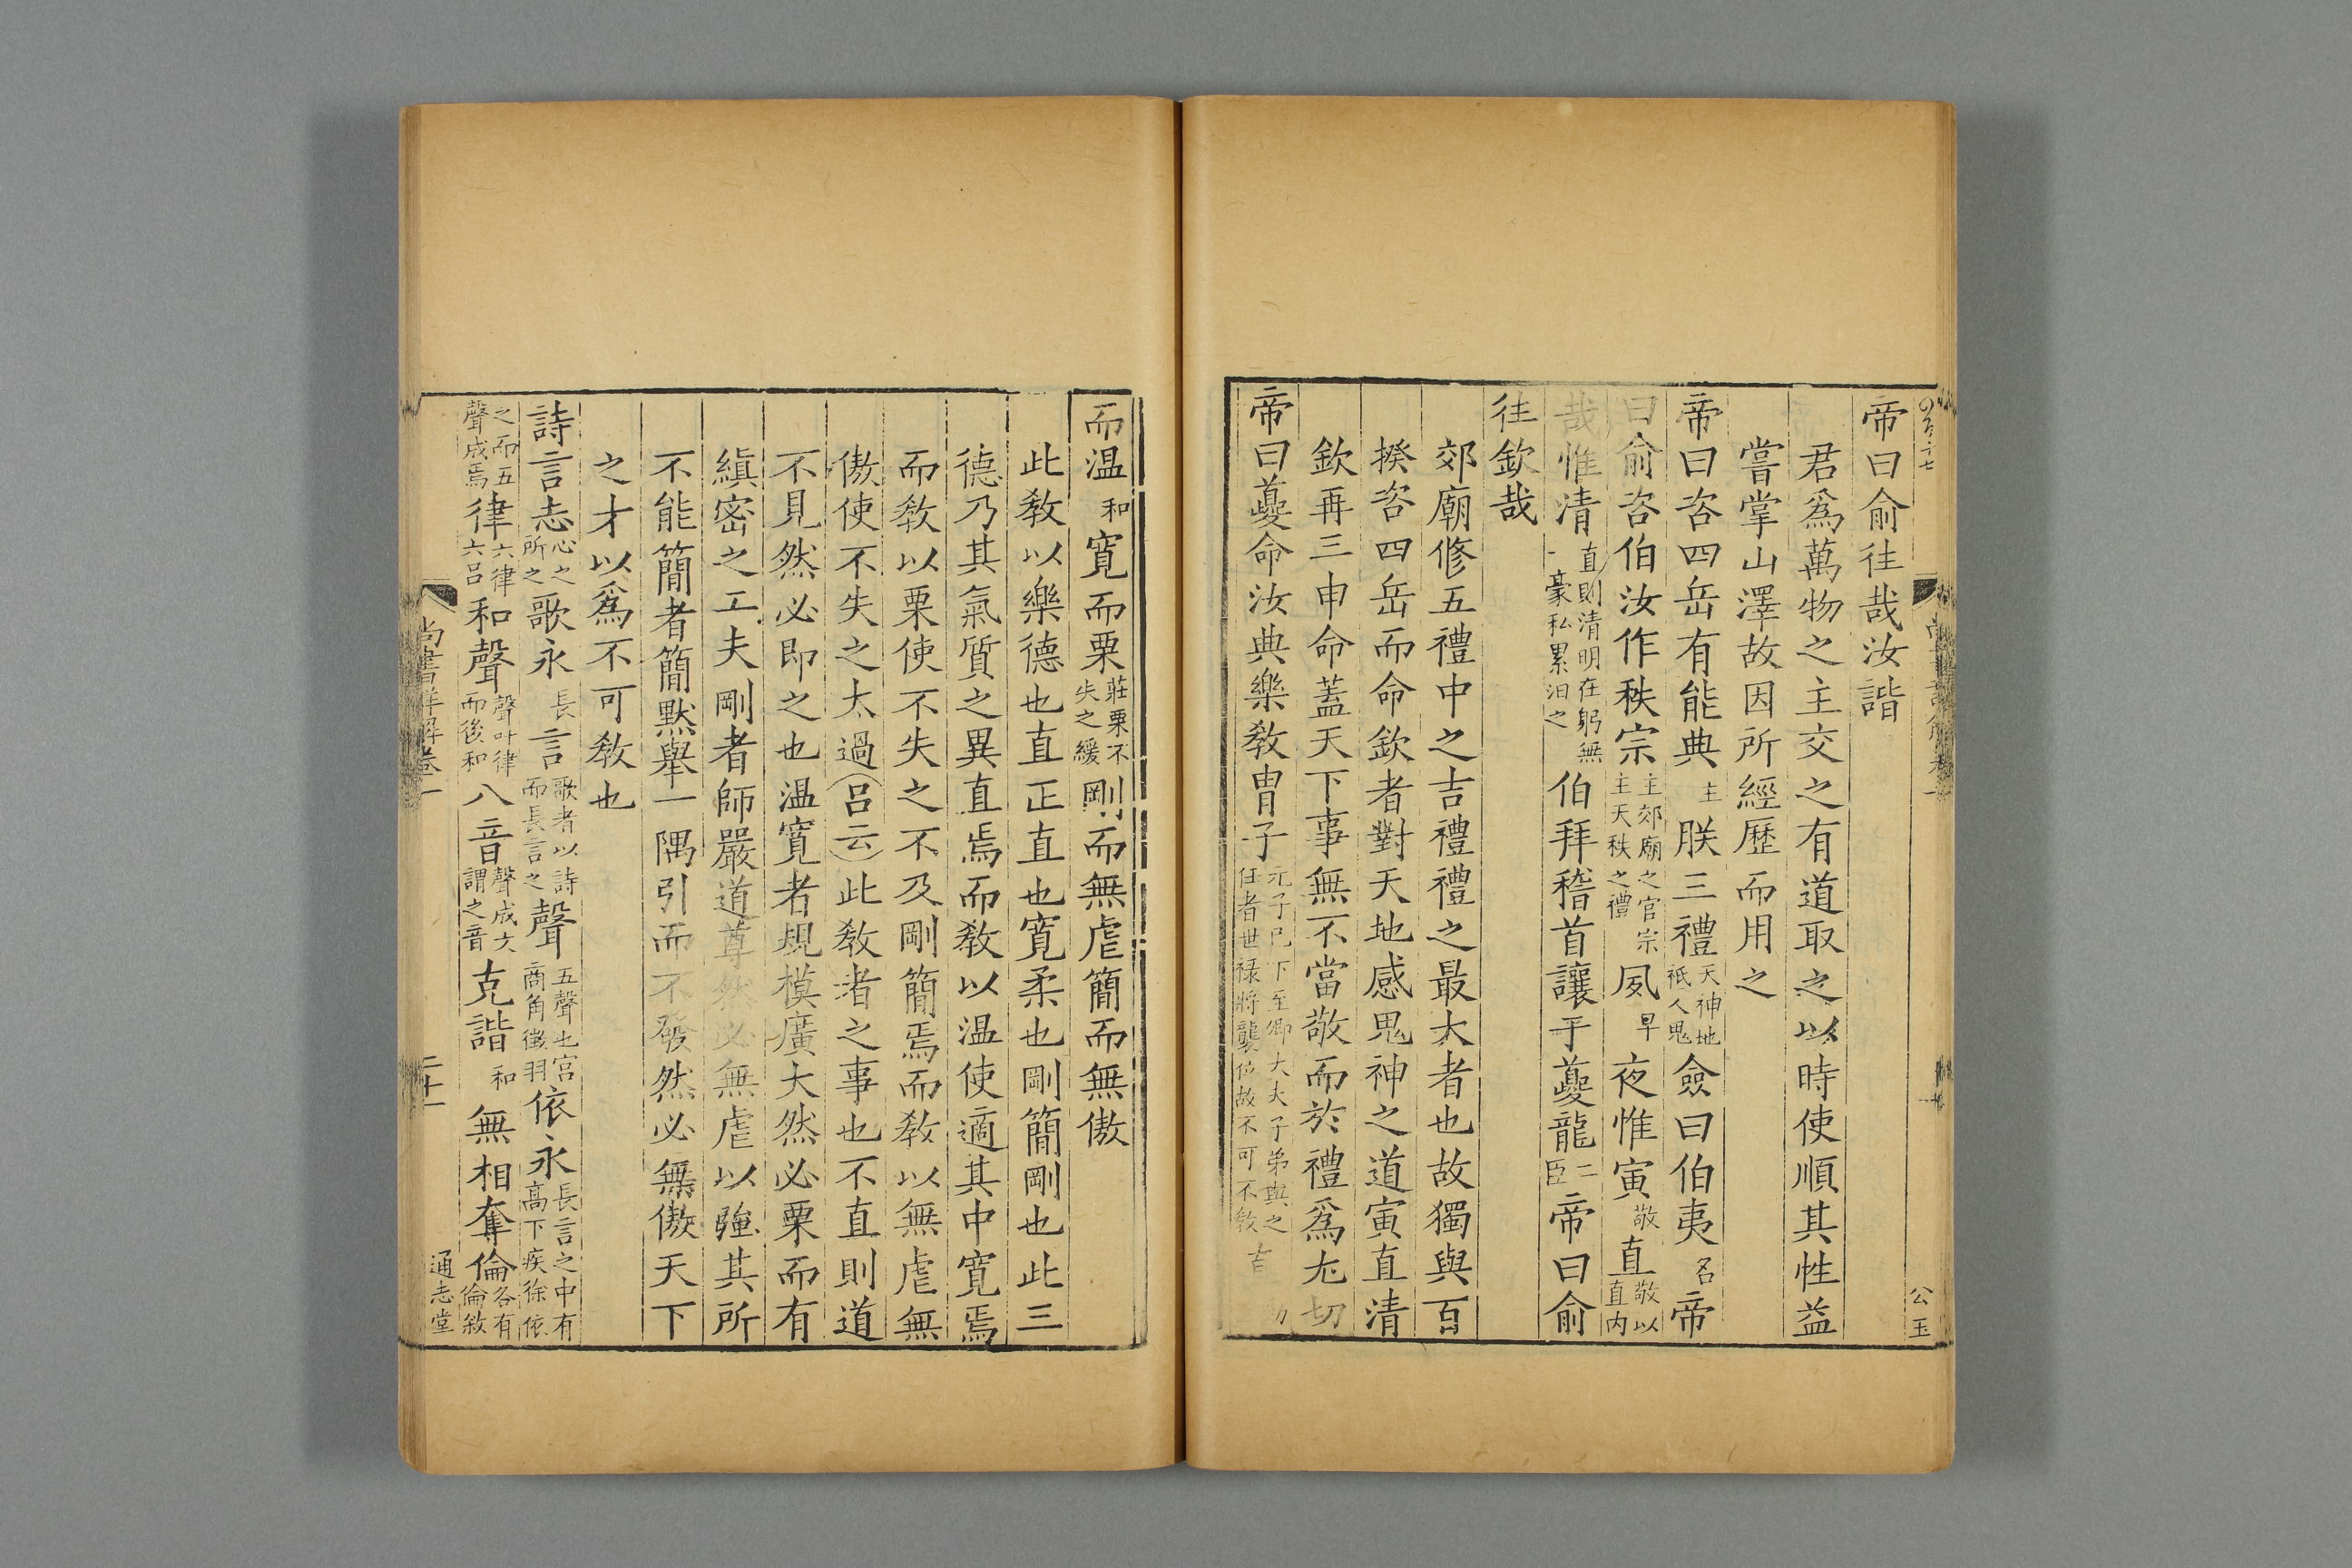 帝曰俞往哉汝諧
君爲萬物之主交之有道取之以時使順其性益
嘗掌山澤故因所經歷而用之
帝曰咨四岳有能典主朕三禮天神地祇人鬼僉曰伯夷名帝
曰俞咨伯汝作秩宗主郊廟之官宗主天秩之禮夙早夜惟寅敬直敬以直内
哉惟清直則清明在躬無一豪私累汩之伯拜稽首讓于夔龍二臣帝曰俞
往欽哉
郊廟修五禮中之吉禮禮之最大者也故獨與百
揆咨四岳而命欽者對天地感鬼神之道寅直清
欽再三申命蓋天下事無不當敬而於禮爲尢切
帝曰夔命汝典樂教胄子元子已下至卿大夫子弟與之任者世禄將襲位故不可不教直
公玉
而温和寛而栗莊栗不失之緩剛而無虐簡而無傲
此教以樂德也直正直也寛柔也剛簡剛也此三
德乃其氣質之異直焉而教以温使適其中寛焉
而教以栗使不失之不及剛簡焉而教以無虐無
傲使不失之太過(呂云)此教者之事也不直則道
不見然必即之也温寛者規模廣大然必栗而有
縝密之工夫剛者師嚴道尊然必無虐以強其所
不能簡者簡默舉一隅引而不發然必無傲天下
之才以爲不可教也
詩言志心之所之歌永長言歌者以詩而長言之聲五聲也宮商角徵羽依永長言之中有高下疾徐依
之而五聲成焉律六律六呂和聲聲叶律而後和八音聲成文謂之音克諧和無相奪倫各有倫敘
尚書詳解卷一
二十一
通志堂